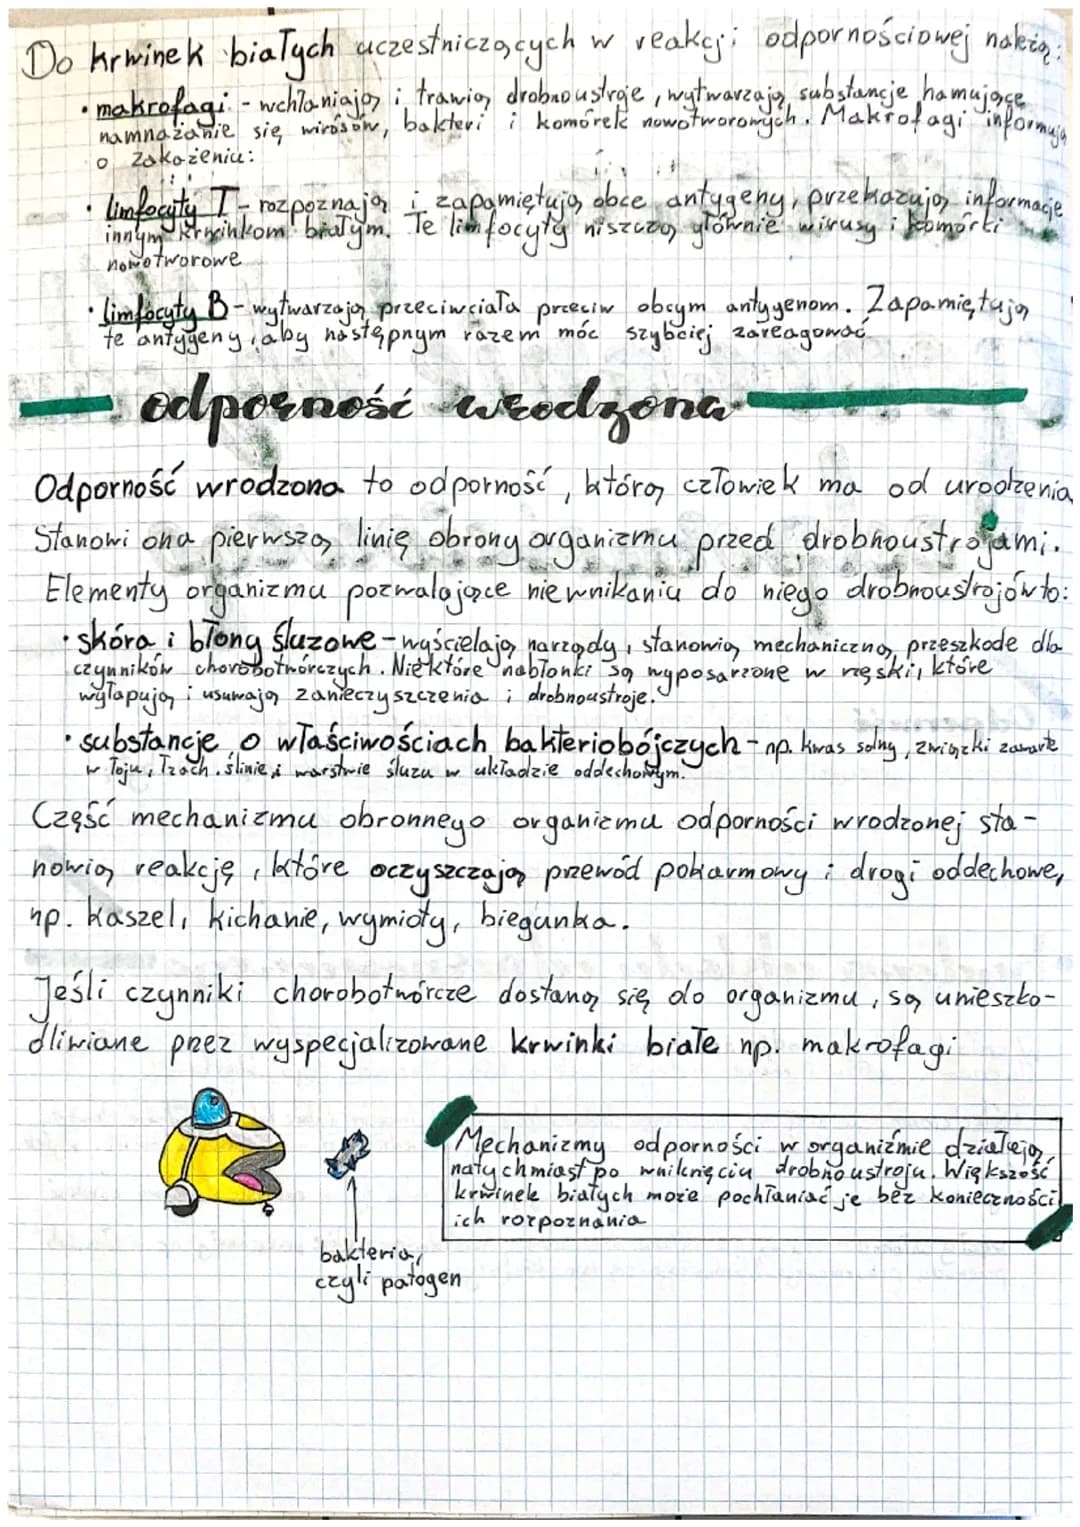 Do krwinek białych uczestniczących w reakcji odpornościowej należą:
• makrofagi - wchłaniają i trawią drobnoustroje, wytwarzają substancje hamujące
namnażanie się wirósów, bakteri i komórek nowotworowych. Makrofagi informują
o zakażeniu:
• limfocyty T - rozpoznają i zapamiętują obce antygeny, przekazują informacje
innym krwinkom białym. Te limfocyty niszczą głównie wirusy i komórki
nowotworowe
• limfocyty B - wytwarzają przeciwciała przeciw obcym antygenom. Zapamiętują
te antygeny, aby następnym razem móc szybciej zareagować
odporność wrodzona
Odporność wrodzona to odporność, którą człowiek ma od urodzenia
Stanowi ona pierwszą linię obrony organizmu przed drobnoustrojami.
Elementy organizmu pozwalające niewnikaniu do niego drobnoustrojów to:
• skóra i błony śluzowe - wyścielają narządy, stanowią mechaniczną przeszkode dla
czynników chorobotwórczych. Niektóre nabłonki są wyposarzone w rzęski, które
wyłapują i usuwają zanieczyszczenia i drobnoustroje.
• substancje o właściwościach bakteriobójczych - np. kwas solny, związki zawarte
w łoju, łzach, ślinie i warstwie śluzu w układzie oddechowym.
Część mechanizmu obronnego organizmu odporności wrodzonej sta-
nowią reakcję, które oczyszczają przewód pokarmowy i drogi oddechowe,
np. kaszel, kichanie, wymioty, biegunka.
Jeśli czynniki chorobotwórcze dostaną się do organizmu, są unieszko-
dliwiane przez wyspecjalizowane krwinki białe np. makrofagi
Mechanizmy odporności w organiźmie działają
natychmiast po wniknięciu drobnoustroju. Większość
krwinek białych może pochłaniać je bez konieczności
ich rozpoznania
bakteria,
czyli patogen